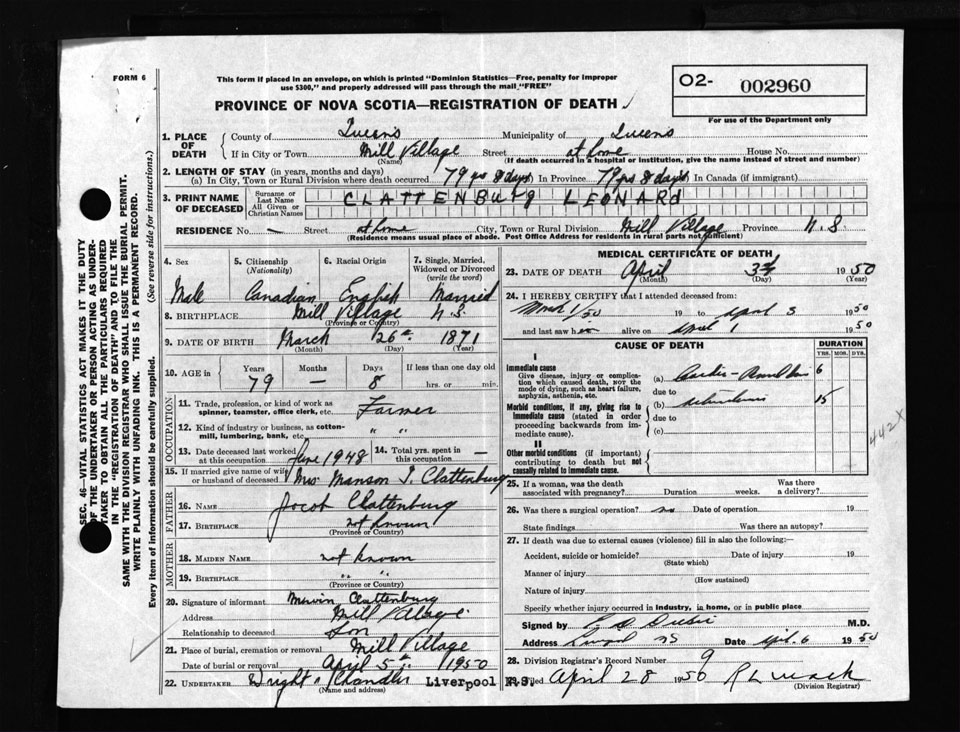 FORM 6
This form if placed in an envelope, on which is printed "Dominion Statistics—Free, penalty for improper
use $300," and properly addressed will pass through the mail "FREE"
O2- 002960
For use of the Department only
PROVINCE OF NOVA SCOTIA—REGISTRATION OF DEATH
1. PLACE OF DEATH
County of Queens Municipality of Queens
If in City or Town Mill Village Street at home House No.
(Name) (If death occurred in a hospital or institution, give the name instead of street and number)
2. LENGTH OF STAY (in years, months and days)
(a) In City, Town or Rural Division where death occurred 79 yrs 8 days In Province 79 yrs 8 days In Canada (if immigrant)
3. PRINT NAME OF DECEASED
Surname or Last Name
All Given or Christian Names
CLATTENBURG LEONARD
RESIDENCE No. — Street at home City, Town or Rural Division Mill Village Province N.S.
(Residence means usual place of abode. Post Office Address for residents in rural parts not sufficient)
4. Sex 5. Citizenship (Nationality) 6. Racial Origin 7. Single, Married, Widowed or Divorced (write the word)
Male Canadian English Married
8. BIRTHPLACE Mill Village N.S.
(Province or Country)
9. DATE OF BIRTH March 26th 1871
(Month) (Day) (Year)
10. AGE in Years Months Days If less than one day old
79 — 8 hrs. or min.
OCCUPATION
11. Trade, profession, or kind of work as spinner, teamster, office clerk, etc. Farmer
12. Kind of industry or business, as cotton-mill, lumbering, bank, etc. " "
13. Date deceased last worked at this occupation June 1948 14. Total yrs. spent in this occupation —
15. If married give name of wife or husband of deceased Mrs. Manson J. Clattenburg
FATHER
16. NAME Jacob Clattenburg
17. BIRTHPLACE not known
(Province or Country)
MOTHER
18. MAIDEN NAME not known
19. BIRTHPLACE " "
(Province or Country)
20. Signature of informant Mervin Clattenburg
Address Mill Village
Relationship to deceased Son
21. Place of burial, cremation or removal Mill Village
Date of burial or removal April 5th 1950
22. UNDERTAKER Wright & Chandler Liverpool N.S.
(Name and address)
MEDICAL CERTIFICATE OF DEATH
23. DATE OF DEATH April 3rd 1950
(Month) (Day) (Year)
24. I HEREBY CERTIFY that I attended deceased from:
March 1/50 19 to April 3 1950
and last saw him alive on April 1 1950
CAUSE OF DEATH DURATION
YRS. MOS. DYS.
I
Immediate cause
Give disease, injury or complication which caused death, NOT the mode of dying, such as heart failure, asphyxia, asthenia, etc.
(a) 6
due to
Morbid conditions, if any, giving rise to immediate cause (stated in order proceeding backwards from immediate cause).
(b) 15
due to
(c)
II
Other morbid conditions (if important) contributing to death but not causally related to immediate cause.
442X
25. If a woman, was the death associated with pregnancy? Duration weeks. Was there a delivery?
26. Was there a surgical operation? no Date of operation 19
State findings Was there an autopsy?
27. If death was due to external causes (violence) fill in also the following:—
Accident, suicide or homicide? Date of injury 19
(State which)
Manner of injury
(How sustained)
Nature of injury
Specify whether injury occurred in industry, in home, or in public place
Signed by M.D.
Address Date April 6 1950
28. Division Registrar's Record Number 9
29. Filed April 28 1950 R L Mack
(Division Registrar)
SEC. 46—VITAL STATISTICS ACT MAKES IT THE DUTY
OF THE UNDERTAKER OR PERSON ACTING AS UNDER-
TAKER TO OBTAIN ALL THE PARTICULARS REQUIRED
IN THE "REGISTRATION OF DEATH" AND TO FILE THE
SAME WITH THE DIVISION REGISTRAR WHO SHALL ISSUE THE BURIAL PERMIT.
WRITE PLAINLY WITH UNFADING INK. THIS IS A PERMANENT RECORD.
Every item of information should be carefully supplied. (See reverse side for instructions.)